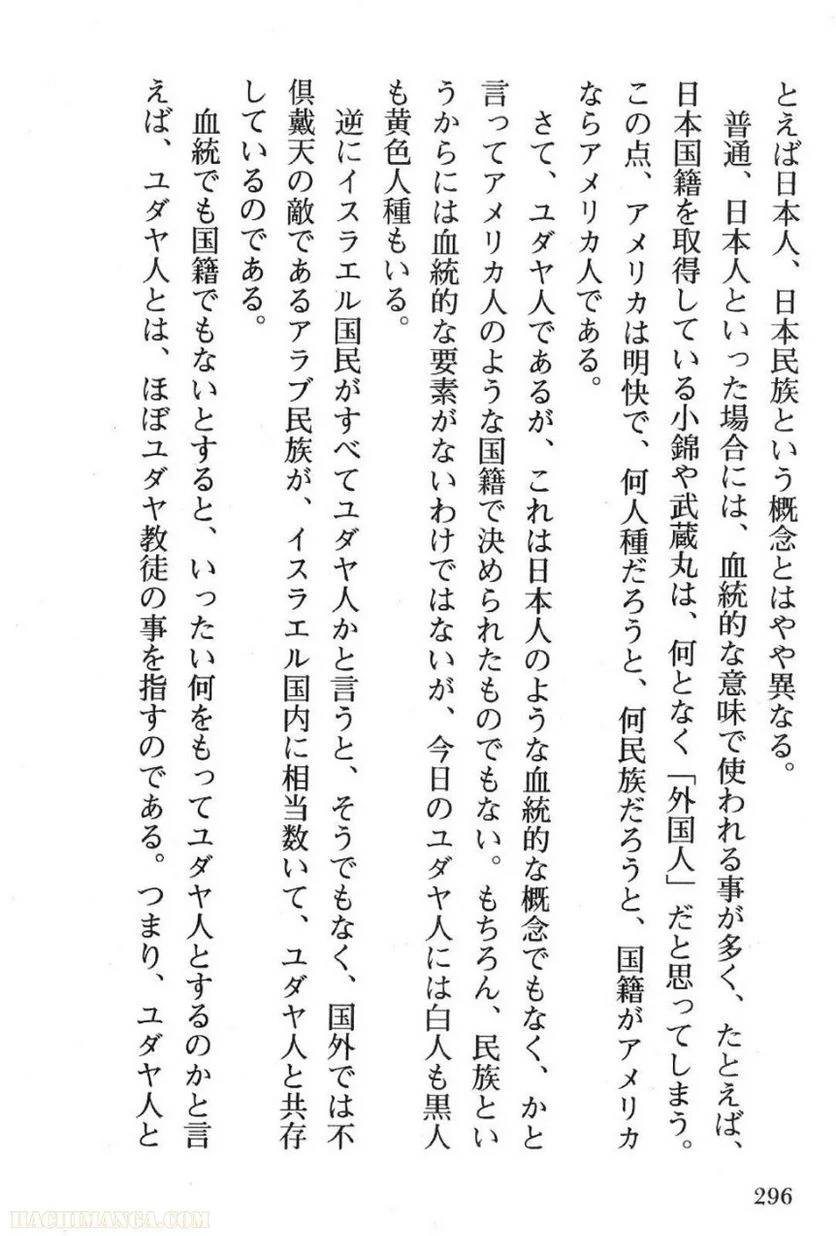 とえば日本人、日本民族という概念とはやや異なる。
普通、日本人といった場合には、血統的な意味で使われる事が多く、たとえば、
日本国籍を取得している小錦や武蔵丸は、何となく「外国人」だと思ってしまう。
この点、アメリカは明快で、何人種だろうと、何民族だろうと、国籍がアメリカ
ならアメリカ人である。
さて、ユダヤ人であるが、これは日本人のような血統的な概念でもなく、かと
言ってアメリカ人のような国籍で決められたものでもない。もちろん、民族とい
うからには血統的な要素がないわけではないが、今日のユダヤ人には白人も黒人
も黄色人種もいる。
逆にイスラエル国民がすべてユダヤ人かと言うと、そうでもなく、国外では不
倶戴天の敵であるアラブ民族が、イスラエル国内に相当数いて、ユダヤ人と共存
しているのである。
血統でも国籍でもないとすると、いったい何をもってユダヤ人とするのかと言
えば、ユダヤ人とは、ほぼユダヤ教徒の事を指すのである。つまり、ユダヤ人と
296
HACHIMANGA.COM